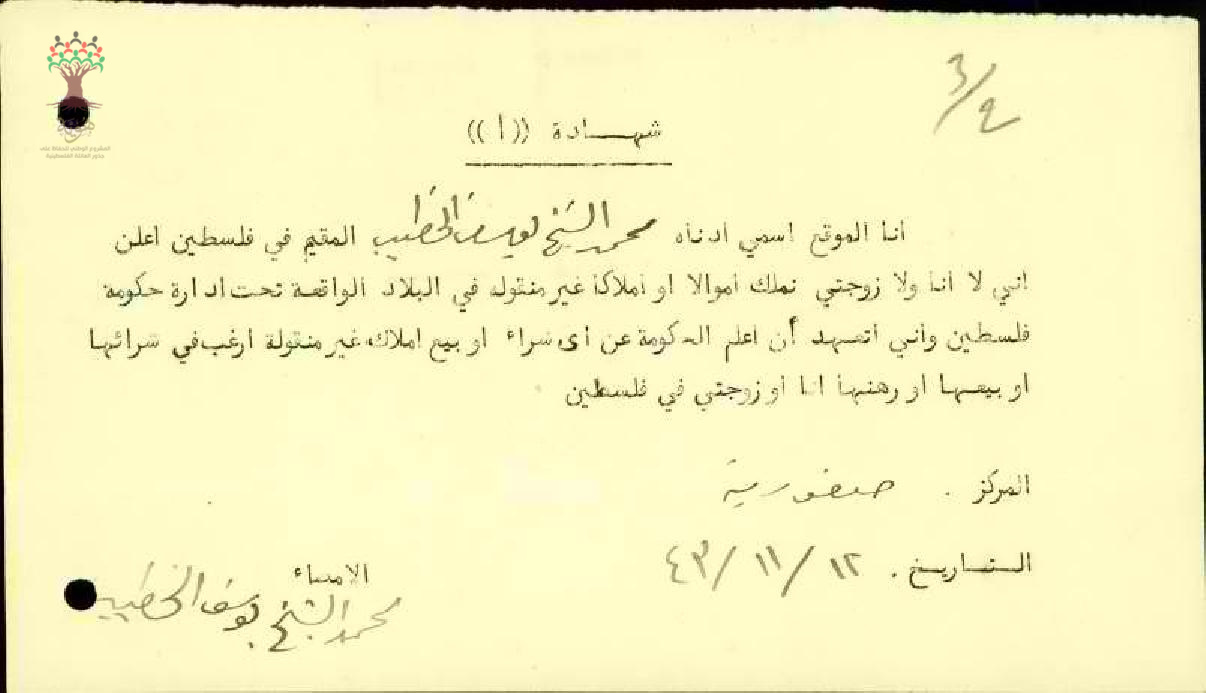 المشروع الوطني للحفاظ على
جذور العائلة الفلسطينية
٣/٤
شهـــادة ((أ))
انا الموقع اسمي ادناه محمد الشيخ يوسف الخطيب المقيم في فلسطين اعلن
اني لا انا ولا زوجتي نملك اموالا او املاكا غير منقوله في البلاد الواقعة تحت ادارة حكومة
فلسطين واني اتعهد أن اعلم الحكومة عن أى شراء او بيع املاك غير منقولة ارغب في شرائها
او بيعها او رهنها انا او زوجتي في فلسطين
المركز . صفورية
التـاريـخ . ١٢/ ١١/ ٤٣
الامضاء
محمد الشيخ يوسف الخطيب